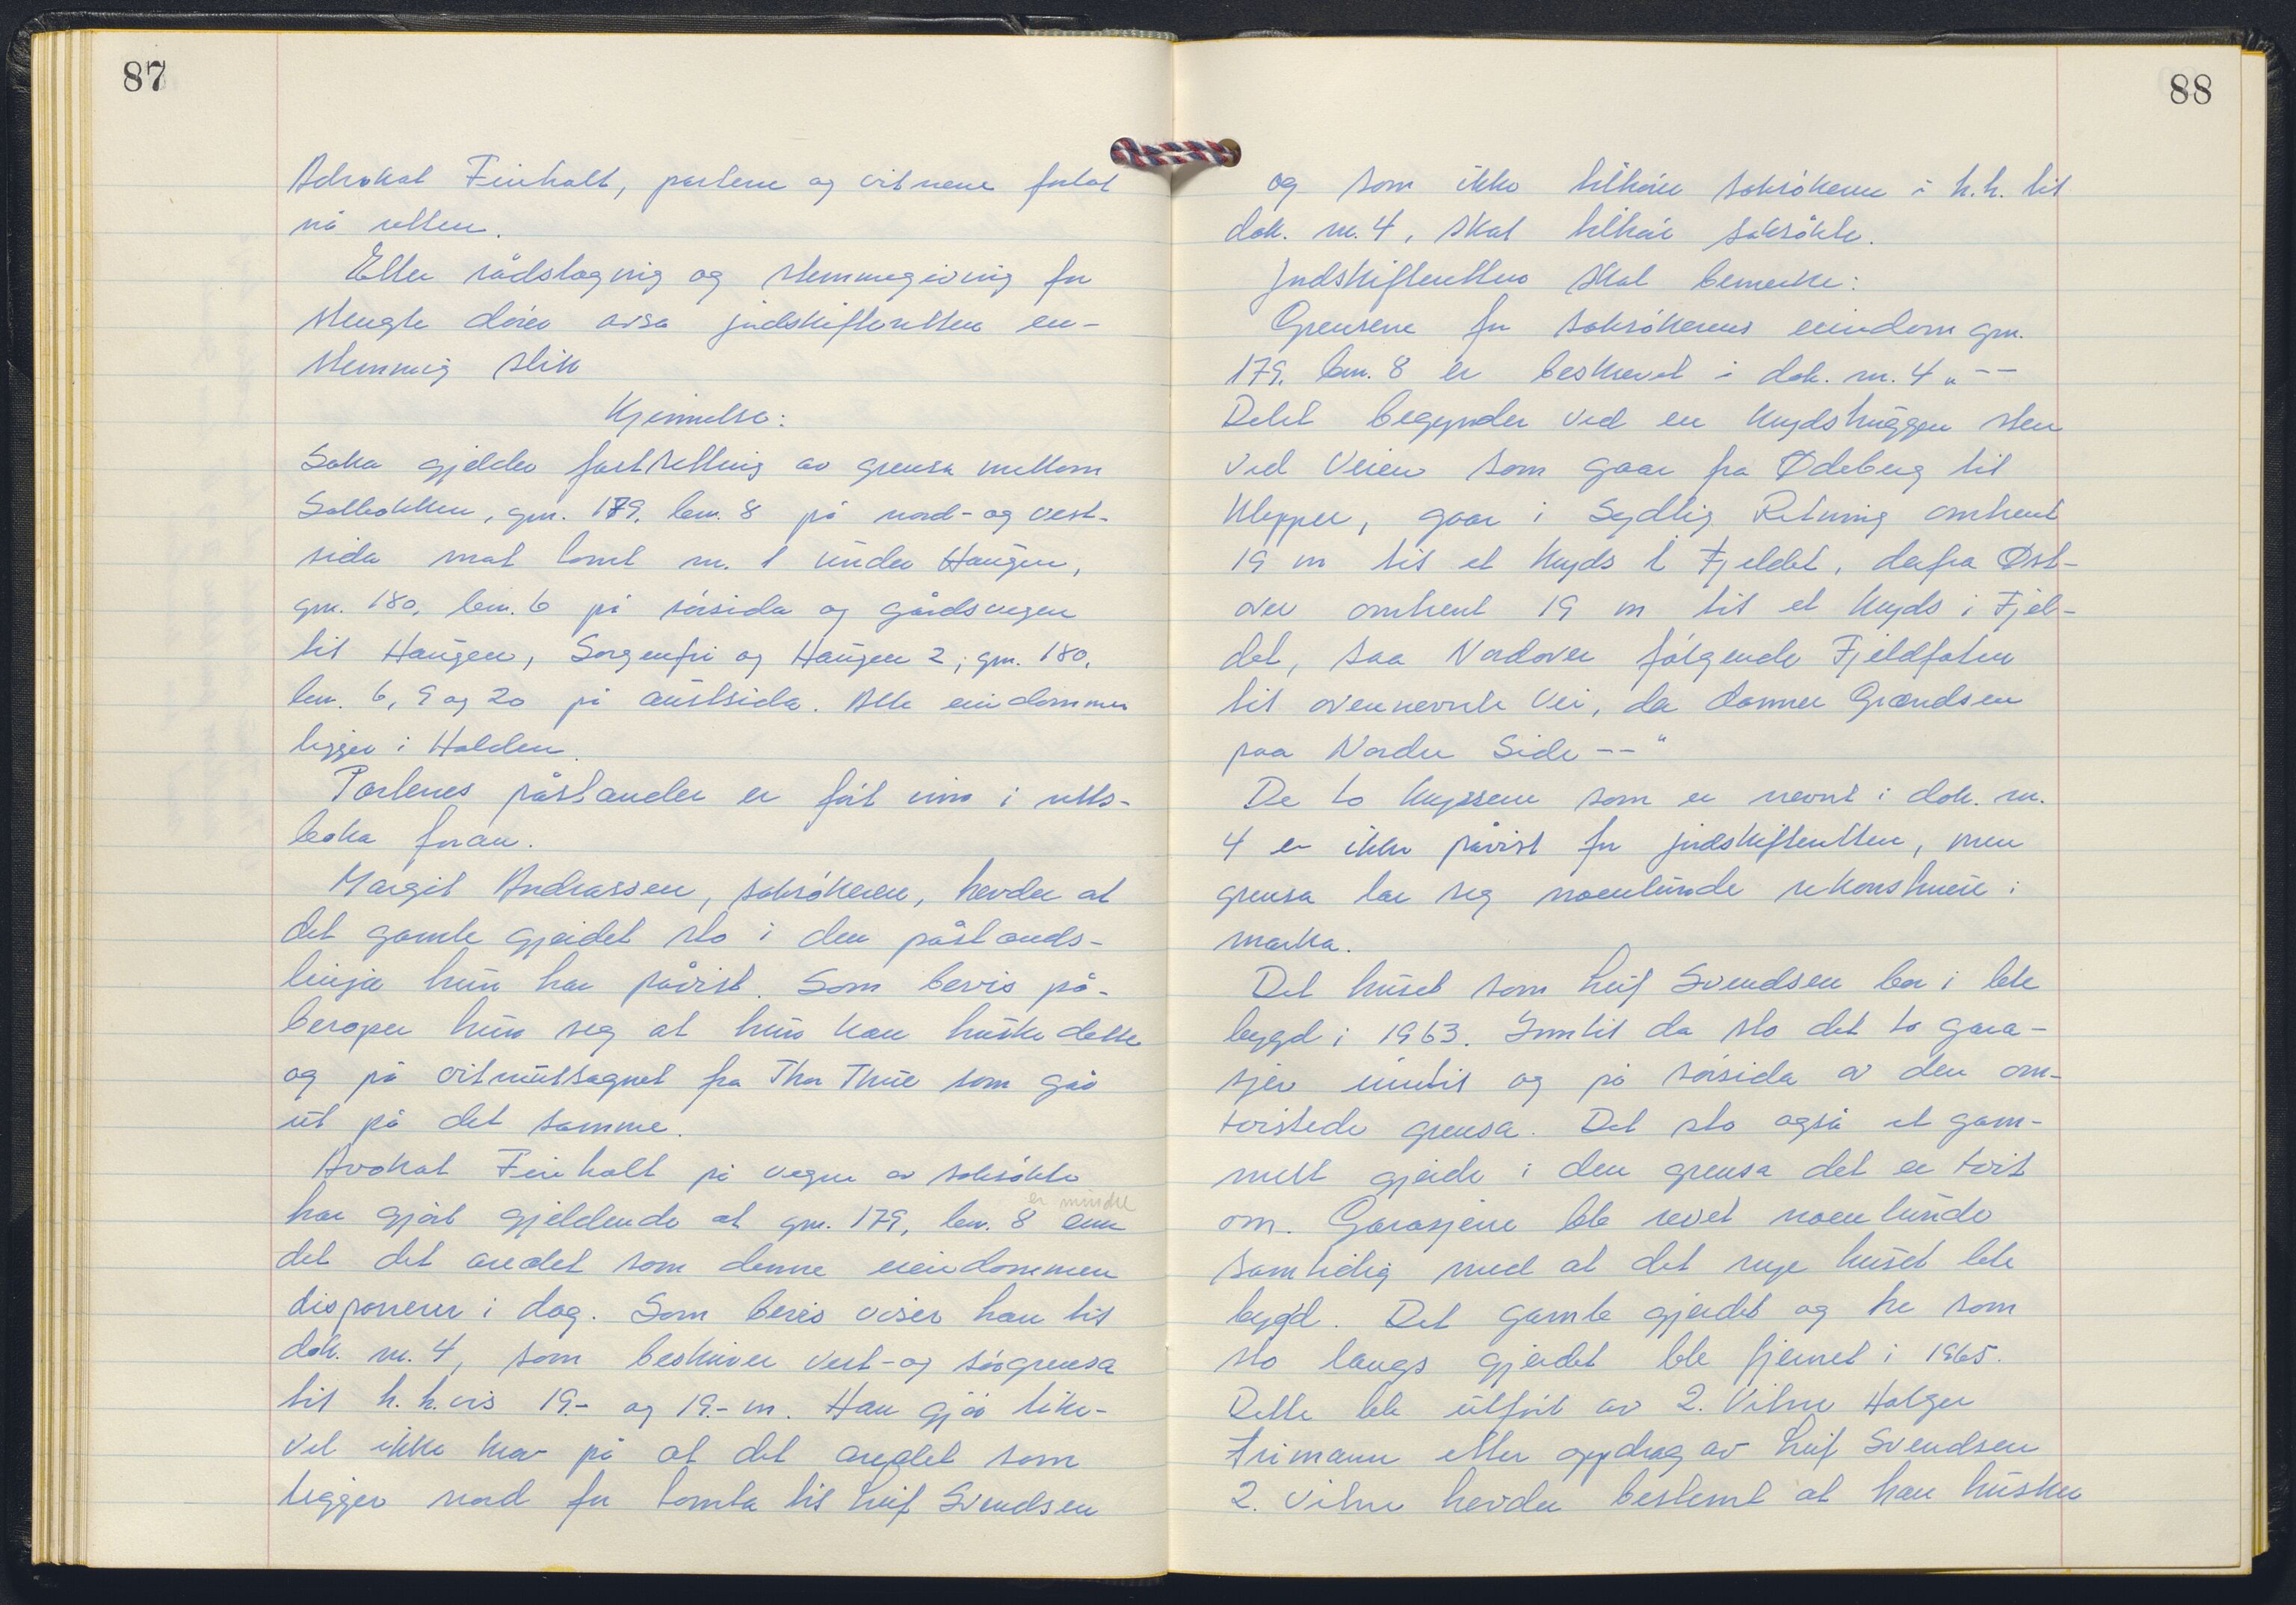 87
Advokat Feinholt, partene og vitnene forlot
nå retten.
Etter rådslagning og stemmegivning for
stengte dører avsa jordskifteretten en-
stemmig slik
Kjennelse:
Saka gjelder fastsetting av grensa mellom
Solbakken, gnr. 179, bnr. 8 på nord- og vest-
sida mot tomt nr. 1 under Haugen,
gnr. 180, bnr. 6 på sørsida og gårdsvegen
til Haugen, Sorgenfri og Haugen 2, gnr. 180,
bnr. 6, 9 og 20 på austsida. Alle eiendommer
ligger i Halden.
Partenes påstander er ført inn i retts-
boka foran.
Margit Andreassen, saksøkeren, hevder at
det gamle gjerdet sto i den påstands-
linja hun har påvist. Som bevis på-
beroper hun seg at hun kan huske dette
og på vitneutsagnet fra Thor Thue som går
ut på det samme.
Avokat Feinholt på vegne av saksøkte
har gjort gjeldende at gnr. 179, bnr. 8 er mindre enn
det det arealet som denne eiendommen
disponerer i dag. Som bevis viser han til
dok. nr. 4, som beskriver vest- og sørgrensa
til h.h.vis 19.- og 19.- m. Han gjør like-
vel ikke krav på at det arealet som
ligger nord for tomta til Leif Svendsen
88
og som ikke tilhører saksøkeren i h.h. til
dok. nr. 4, skal tilhøre saksøkte.
Jordskifteretten skal bemerke:
Grensene for saksøkerens eiendom gnr.
179, bnr. 8 er beskrevet i dok. nr. 4 „--
Delet begynder ved en krydshuggen sten
ved Veien som gaar fra Ødeberg til
Klepper, gaar i Sydlig Retning omtrent
19 m til et kryds i Fjeldet, derfra Øst-
over omtrent 19 m til et kryds i Fjel-
det, saa Nordover følgende Fjeldfoten
til ovennevnte Vei, der danner Grændsen
paa Nordre Side --"
De to kryssene som er nevnt i dok. nr.
4 er ikke påvist for jordskifteretten, men
grensa lar seg noenlunde rekonstruere i
marka.
Det huset som Leif Svendsen bor i ble
bygd i 1963. Inntil da sto det to gara-
sjer inntil og på sørsida av den om-
tvistede grensa. Det sto også et gam-
melt gjerde i den grensa det er tvist
om. Garasjene ble revet noenlunde
samtidig med at det nye huset ble
bygd. Det gamle gjerdet og tre som
sto langs gjerdet ble fjernet i 1965.
Dette ble utført av 2. Vitne Holger
Arimann etter oppdrag av Leif Svendsen
2. Vitne hevder bestemt at han husker